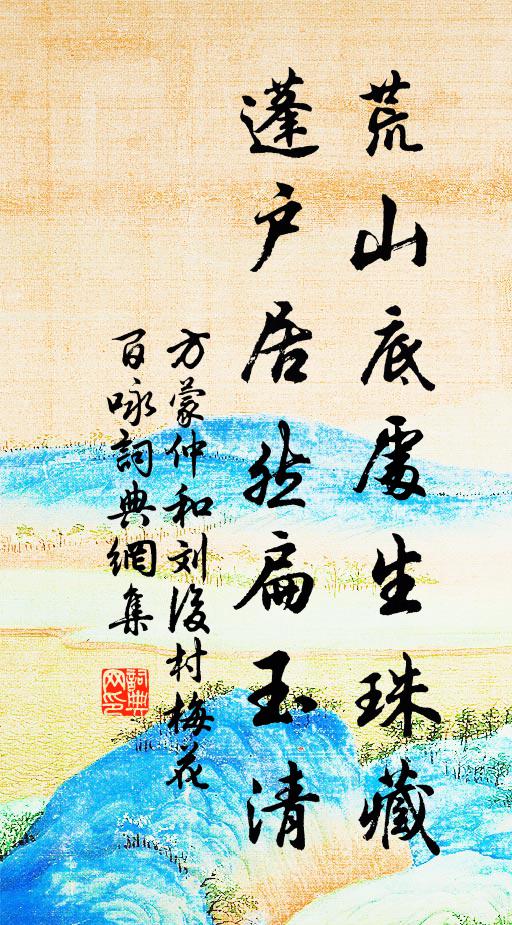 荒山底處生珠藏
蓬户居然扁玉清
方蒙仲和刘後村梅花
百咏詞典網集
詞典
网印